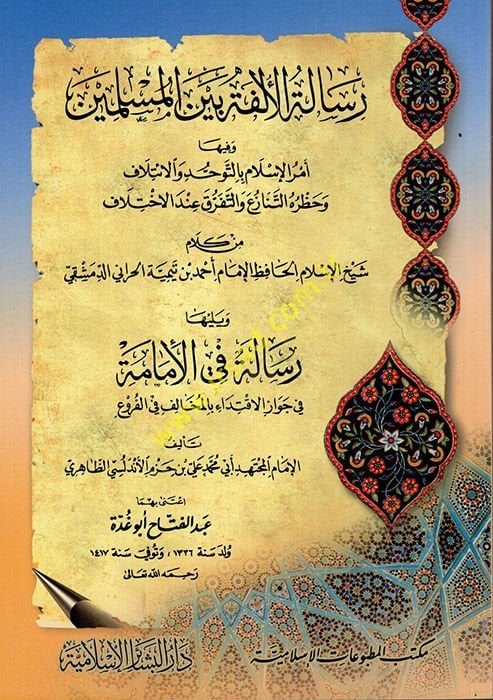 رسالة الألفة بين المسلمين
وفيها
أمر الإسلام بالتوحد والائتلاف
وحظره التنازع والتفرق عند الاختلاف
من كلام
شيخ الإسلام الحافظ الإمام أحمد بن تيمية الحراني الدمشقي
ويليها
رسالة في الإمامة
في جواز الاقتداء بالمخالف في الفروع
تأليف
الإمام المجتهد أبي محمد علي بن حزم الأندلسي الظاهري
اعتنى بهما
عبد الفتاح أبو غدة
ولد سنة ١٣٣٦، وتوفي سنة ١٤١٧
رحمه الله تعالى
مكتب المطبوعات الإسلامية
دار البشائر الإسلامية